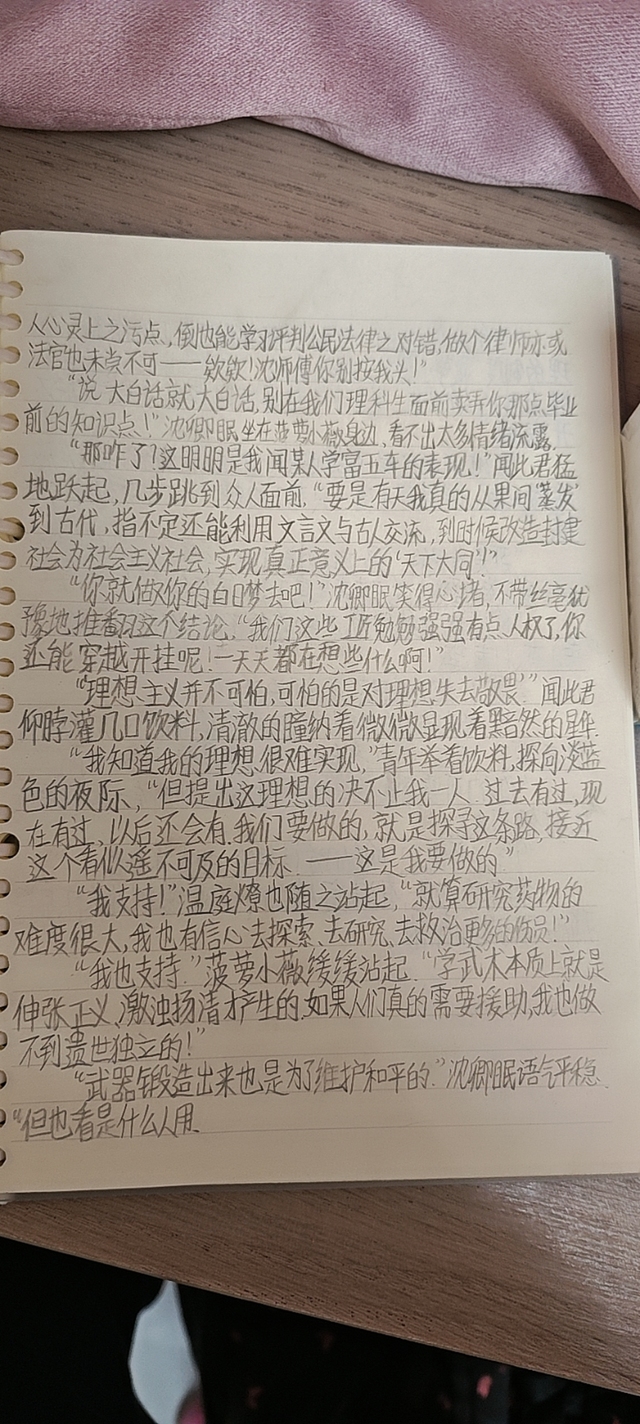 人心灵上之污点,倒也能学习评判公民法律之对错,做个律师亦或
法官也未尝不可——欸欸!沈师傅你别按我头!”
“说大白话就大白话,别在我们理科生面前卖弄你那点毕业
前的知识点!”沈卿眠坐在菠萝小薇身边,看不出太多情绪流露。
“那咋了?这明明是我闻某人学富五车的表现!”闻此君猛
地跃起,几步跳到众人面前,“要是有天我真的从果间‘蒸发’
到古代,指不定还能利用文言文与古人交流,到时候改造封建
社会为社会主义社会,实现真正意义上的‘天下大同’!”
“你就做你的白日梦去吧!”沈卿眠笑得心堵,不带丝毫犹
豫地推翻了这个结论,“我们这些工匠勉勉强强有点人权了,你
还能穿越开挂呢!一天天都在想些什么啊!”
“理想主义并不可怕,可怕的是对理想失去敬畏。”闻此君
仰脖灌几口饮料,清澈的瞳纳着微微显现着黯然的星华。
“我知道我的理想很难实现,”青年举着饮料,探向淡蓝
色的夜际,“但提出这理想的决不止我一人。过去有过,现
在有过,以后还会有。我们要做的,就是探寻这条路,接近
这个看似遥不可及的目标。——这是我要做的。”
“我支持!”温庭燎也随之站起,“就算研究药物的
难度很大,我也有信心去探索、去研究、去救治更多的伤员!”
“我也支持。”菠萝小薇缓缓站起。“学武术本质上就是
伸张正义、激浊扬清才产生的,如果人们真的需要援助,我也做
不到遗世独立的!”
“武器锻造出来也是为了维护和平的。”沈卿眠语气平稳。
“但也看是什么人用。